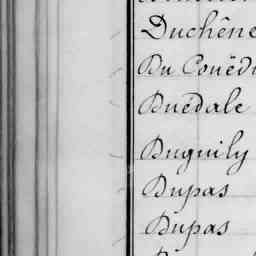 Duchêne
Du Couëdi
Buëdale
Duguily
Dupas
Dupas